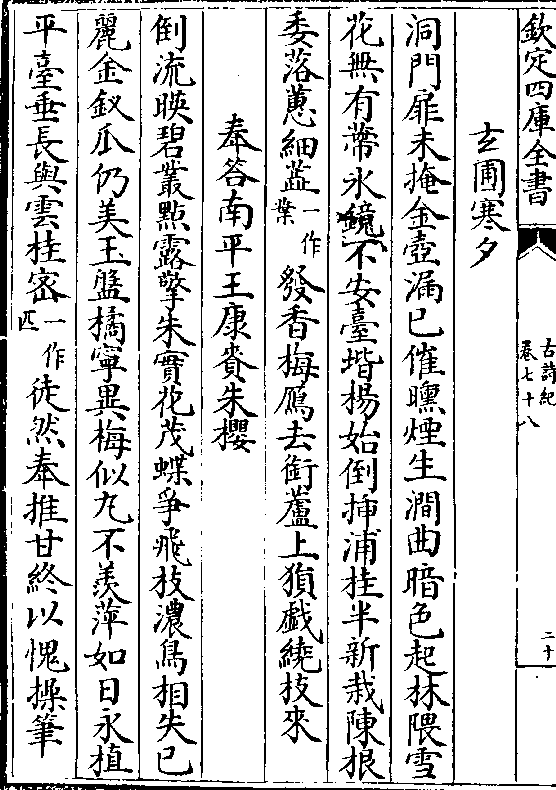 欽定四庫全書
古詩紀
卷七十八
二十
玄圃寒夕
洞門扉未掩金壺漏已催曛煙生澗曲暗色起林隈雪
花無有蔕氷鏡不安臺堦楊始倒揷浦桂半新栽陳根
委落蕙細蕋一作業發香梅鴈去銜蘆上猨戲繞枝來
奉答南平王康賚朱櫻
倒流映碧叢點露擎朱實花茂蝶爭飛枝濃鳥相失已
麗金釵瓜仍美玉盤橘寧異梅似丸不羨萍如日永植
平臺垂長與雲桂密一作匹徒然奉推甘終以愧操筆